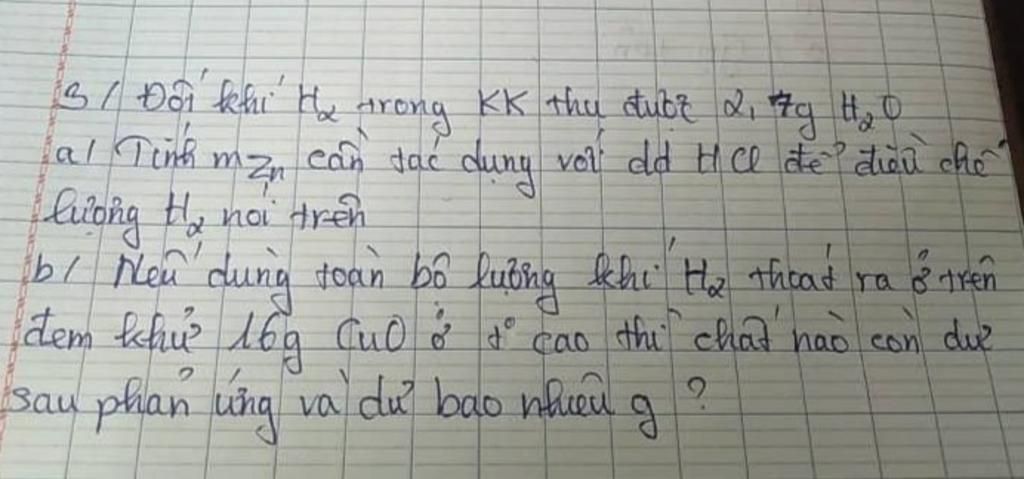 3/ Đốt khí H₂ trong KK thu được 2,7g H₂O
a/ Tính mZn cần tác dụng với dd HCl để điều chế
lượng H₂ nói trên
b/ Nếu dùng toàn bộ lượng khí H₂ thoát ra ở trên
đem khử 16g CuO ở t° cao thì chất nào còn dư
sau phản ứng và dư bao nhiêu g ?